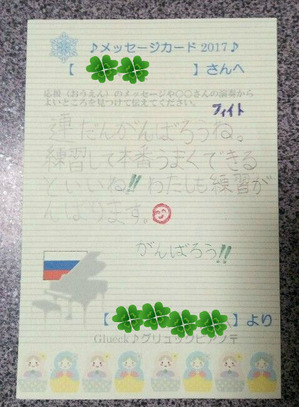 ♪メッセージカード 2017♪
【 】さんへ
応援(おうえん)のメッセージや〇〇さんの演奏から
よいところを見つけて伝えてください。
ファイト
連だんがんばろうね。
練習して本番うまくできる
といいね!! わたしも練習が
んばります。
がんばろう!!
【 】より
Glueck♪グリュックピアノ